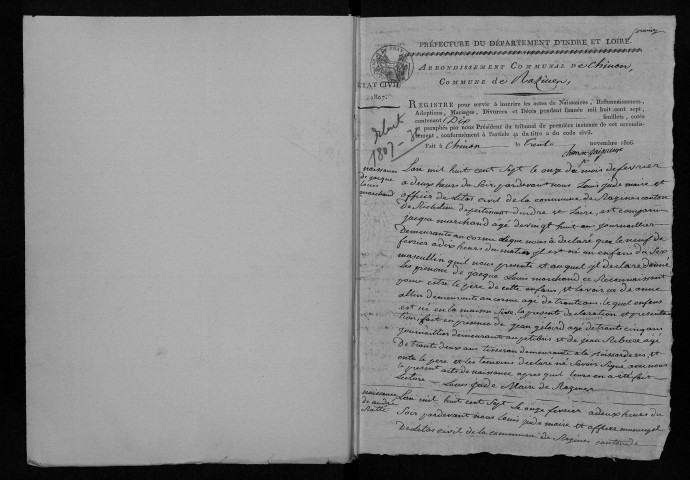 premier
PRÉFECTURE DU DÉPARTEMENT D'INDRE ET LOIRE.
ARRONDISSEMENT COMMUNAL DE Chinon,
COMMUNE de Razines,
ÉTAT CIVIL
1807.
REGISTRE pour servir à inscrire les actes de Naissances, Reconnaissances,
Adoptions, Mariages, Divorces et Décès pendant l'année mil huit cent sept,
contenant Dix feuillets, cotés
et paraphés par nous Président du tribunal de première instance de cet arrondis-
sement, conformément à l'article 41 du titre 2 du code civil.
Fait à Chinon le trente novembre 1806
1807
naissance
de jacque
Louis
marchand
Lan mil huit cent Sept le onze du mois de fevrier
a deux heurs du Soir, pardevant nous Louis jude maire et
officier de Letas civil de la commune de Razines canton
de Richelieu departement dindre et Loire, est comparu
jacque marchand agé de vingt huit an journallier
Demeurante au corme Leque nous à déclaré que le neuf de
fevrier a dix heurs du matin jl est né un enfans du Sex
masculin quil nous presente et auquel jl declare donné
Les prenoms de jacque Louis marchand ce Reconnaissant
pour estre le pere de cette enfans, et lavoir eu de anne
allin demeurante au corme agé de trante ans, lequel enfans
est né en la maison Sise, la presente declaration et presenta
tion fait en presence de jean gelard agé de trante cinq ans
journallier demeurant au petibois et de jean Rebiere agé
De trante deux ans tisseran demeurante a la poissardere, et
onte le pere et les temoins déclaré ne Savoir Signé avec nous
le present acte de naissance apres quil leurs en a été fait
Lecture — Louis jude Maire de Razines
naissance
de andré
Lan mil huit cent Sept le onze fevrier a deux heurs du
Soir pardevant nous Louis jude maire et officer municipal
De letas civil de la commune de Razines cantonde